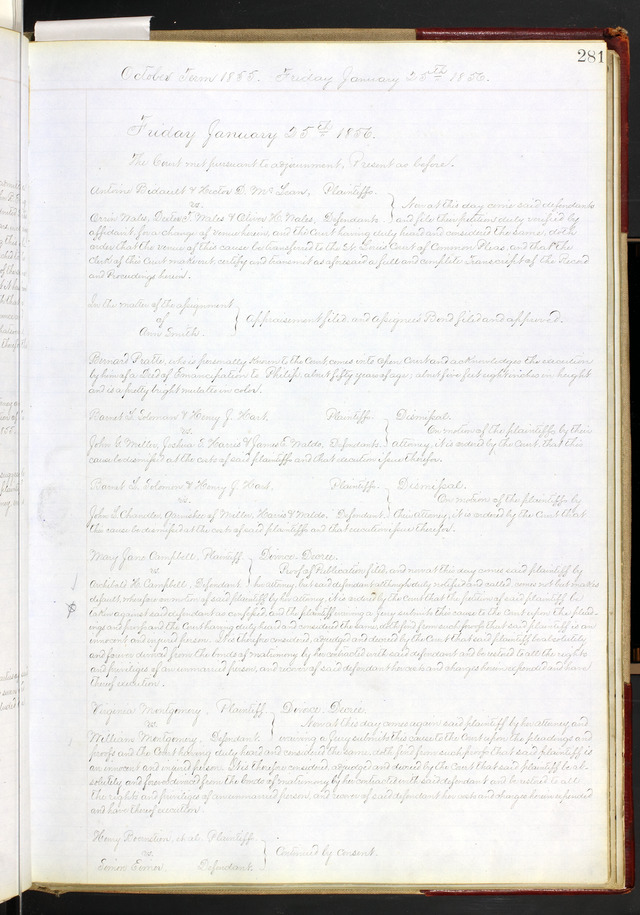 281
October Term 1855. Friday January 25th 1856.
Friday January 25th 1856.
The Court met pursuant to adjournment, Present as before.
Antoine Bidault & Hector D. McLean, Plaintiffs
vs. Now at this day come said defendants
Orrin Wales, Wales & Oliver H. Wales, Defendants and file their petition duly verified by
affidavit for a change of venue herein, and the Court having duly heard and considered the same, doth
order that the venue of this cause be transferred to the St. Louis Court of Common Pleas, and that the
clerk of this Court make out, certify and transmit as aforesaid a full and complete Transcript of the Record
and Proceedings herein.
In the matter of the assignment
of Appraisement filed and assignees Bond filed and approved.
Ann Smith.
Bernard Pratte, who is personally known to the Court comes into open Court and acknowledges the execution
by him of a Deed of Emancipation to Philip, about fifty years of age, about five feet eight inches in height
and is a pretty bright mulatto in color.
Barnet L. Solomon & Henry J. Hart, Plaintiffs Dismissal.
vs. On motion of the plaintiffs by their
John G. Miller, Joshua T. Harris & James E. Waldo, Defendants attorney, it is ordered by the Court that this
cause be dismissed at the costs of said plaintiffs and that execution issue therefor.
Barnet L. Solomon & Henry J. Hart, Plaintiffs Dismissal.
vs. On motion of the plaintiffs by
John L. Chandler, Garnishee of Miller, Harris & Waldo, Defendant their attorney, it is ordered by the Court that
this cause be dismissed at the costs of said plaintiffs and that execution issue therefor.
Mary Jane Campbell, Plaintiff Divorce. Decree.
vs. Proof of Publication filed, and now at this day comes said plaintiff by
Archibald H. Campbell, Defendant her attorney, but said defendant although duly notified and called comes not but makes
default, wherefore on motion of said plaintiff by her attorney, it is ordered by the Court that the petition of said plaintiff be
taken against said defendant as confessed, and the plaintiff waiving a jury submits this cause to the Court upon the plead-
ings and proofs and the Court having duly heard and considered the same, doth find from such proof that said plaintiff is an
innocent and injured person. It is therefore considered, adjudged and decreed by the Court that said plaintiff be absolutely
and forever divorced from the bonds of matrimony by her contracted with said defendant and be restored to all the rights
and privileges of an unmarried person, and recover of said defendant her costs and charges herein expended and have
thereof execution.
Virginia Montgomery, Plaintiff Divorce. Decree.
vs. Now at this day comes again said plaintiff by her attorney and
William Montgomery, Defendant waiving a Jury submits this cause to the Court upon the pleadings and
proofs and the Court having duly heard and considered the same, doth find from such proof that said plaintiff is
an innocent and injured person. It is therefore considered, adjudged and decreed by the Court that said plaintiff be ab-
solutely and forever divorced from the bonds of matrimony by her contracted with said defendant and be restored to all
the rights and privileges of an unmarried person, and recover of said defendant her costs and charges herein expended
and have thereof execution.
Henry et al. Plaintiffs
vs. Continued by consent.
Defendant